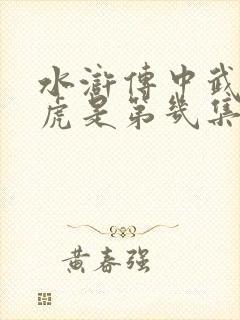 水滸傳中武
虎是第幾集
黄春强